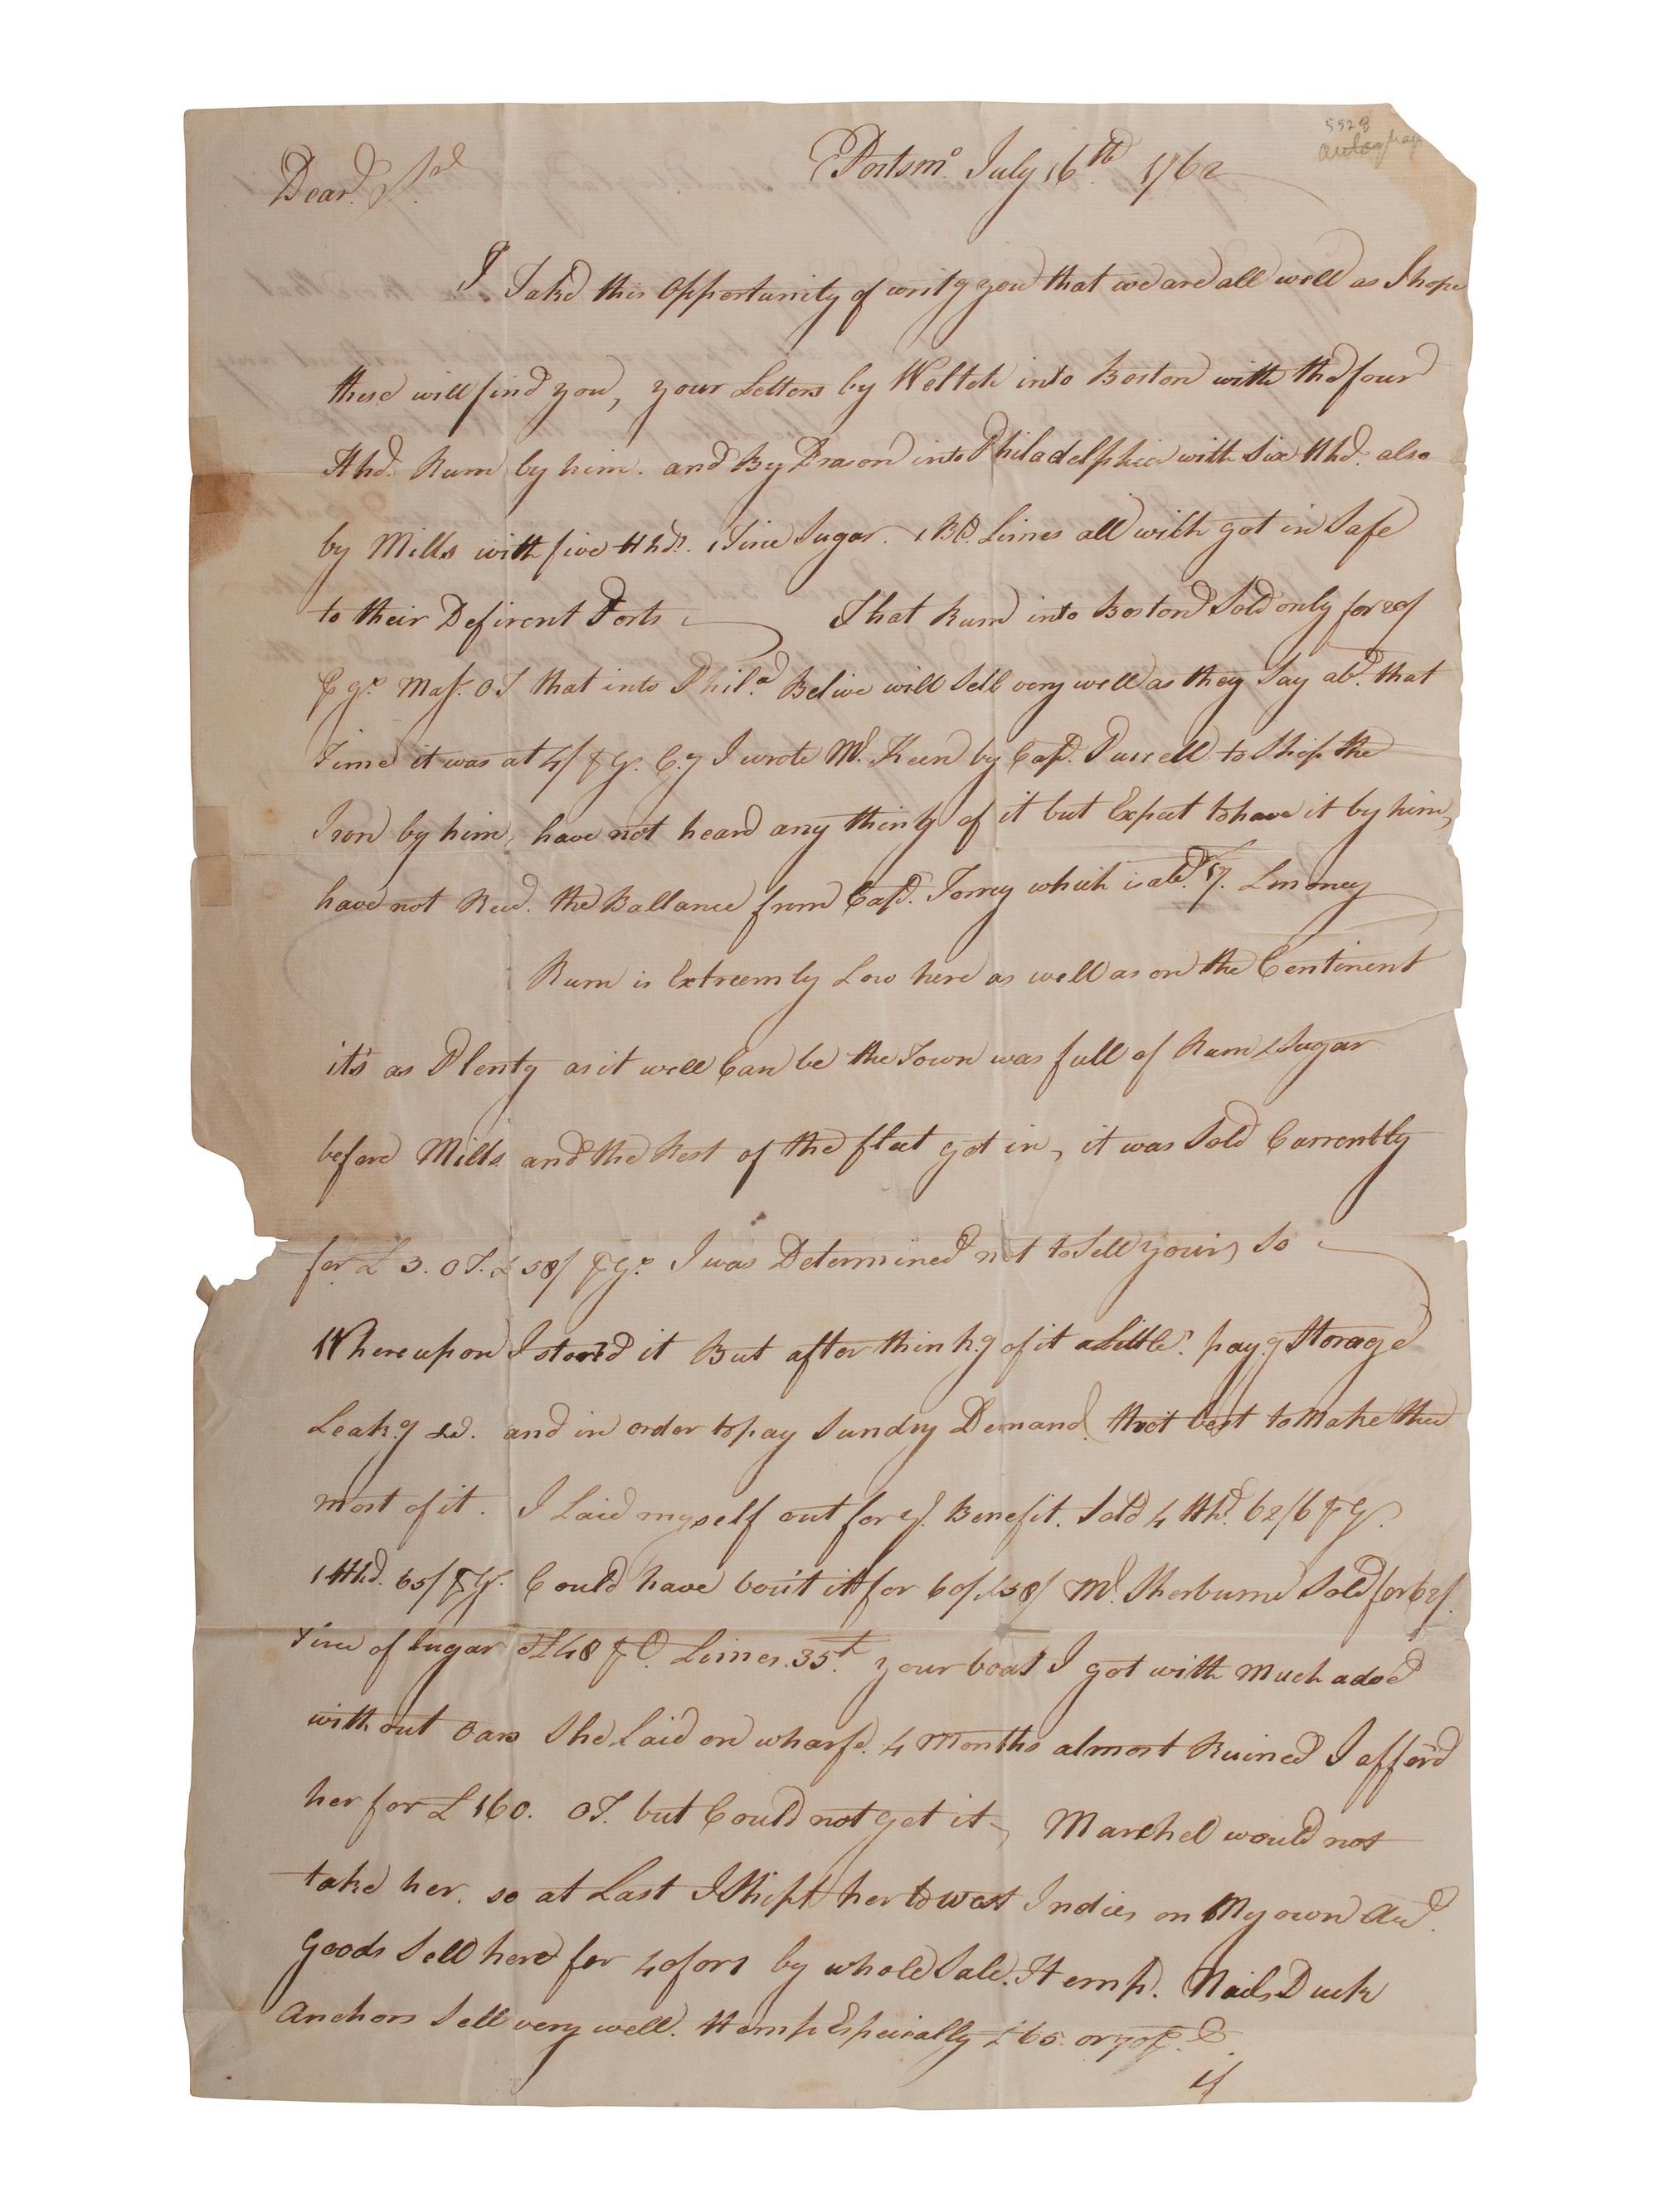 5928
Portsmo. July 16th 1762
Dear. Sr.
I Take this Opportunity of writg you that we are all well as I hope
these will find you, your Letters by Weltch into Boston with the four
Hhd. Rum by him. and By Drason into Philadelphia with Six Hhd. also
by Mills with five Hhds. 1 Tirce Sugar. 1 Bl. Limes all wich got in Safe
to their Defirent Ports That Rum into Boston Sold only for
that into Phila. Belive will Sell very well as they Say abt. that
Time it was at 4/ I wrote Mr. Keen by Capt. Purcell to Ship the
Iron by him, have not heard any thing of it but Expect to have it by him,
have not Recd. the Ballance from Capt. Torrey which is abt. £7. Lmoney
Rum is Extreemly Low here as well as on the Continent
it's as Plenty as it well Can be the Town was full of Rum & Sugar
before Mills and the Rest of the fleet got in, it was Sold Currently
for £3. OT. & 58/ ⅌ Go. I was Determined not to Sell yours So
Whereupon I stoor'd it But after think.g of it a Little. pay.g Storage
Leak.g &c. and in order to pay Sundry Demand. thot best to Make the
most of it. I Laid myself out for yr. Benefit. Sold 4 Hhd. 62/6 ⅌ G.
1 Hhd. 65/ ⅌ G. Could have bou't it for 60/ & 58/ Mr. Sherburne Sold for 62/.
Tirce of Sugar at £48 ⅌ C. Limes. 35.£ your boat I got with Much adoe
without Oars She Laid on wharfe. 4 Months almost Ruined I affer'd
her for £160. OT. but Could not get it, Marchel would not
take her. so at Last I Shipt her to West Indies on My own Acct.
Goods Sell here for 40 for 1 by whole Sale. Hemp. Nails Duck
Anchors Sell very well. Hemp Espicially £65. or 70